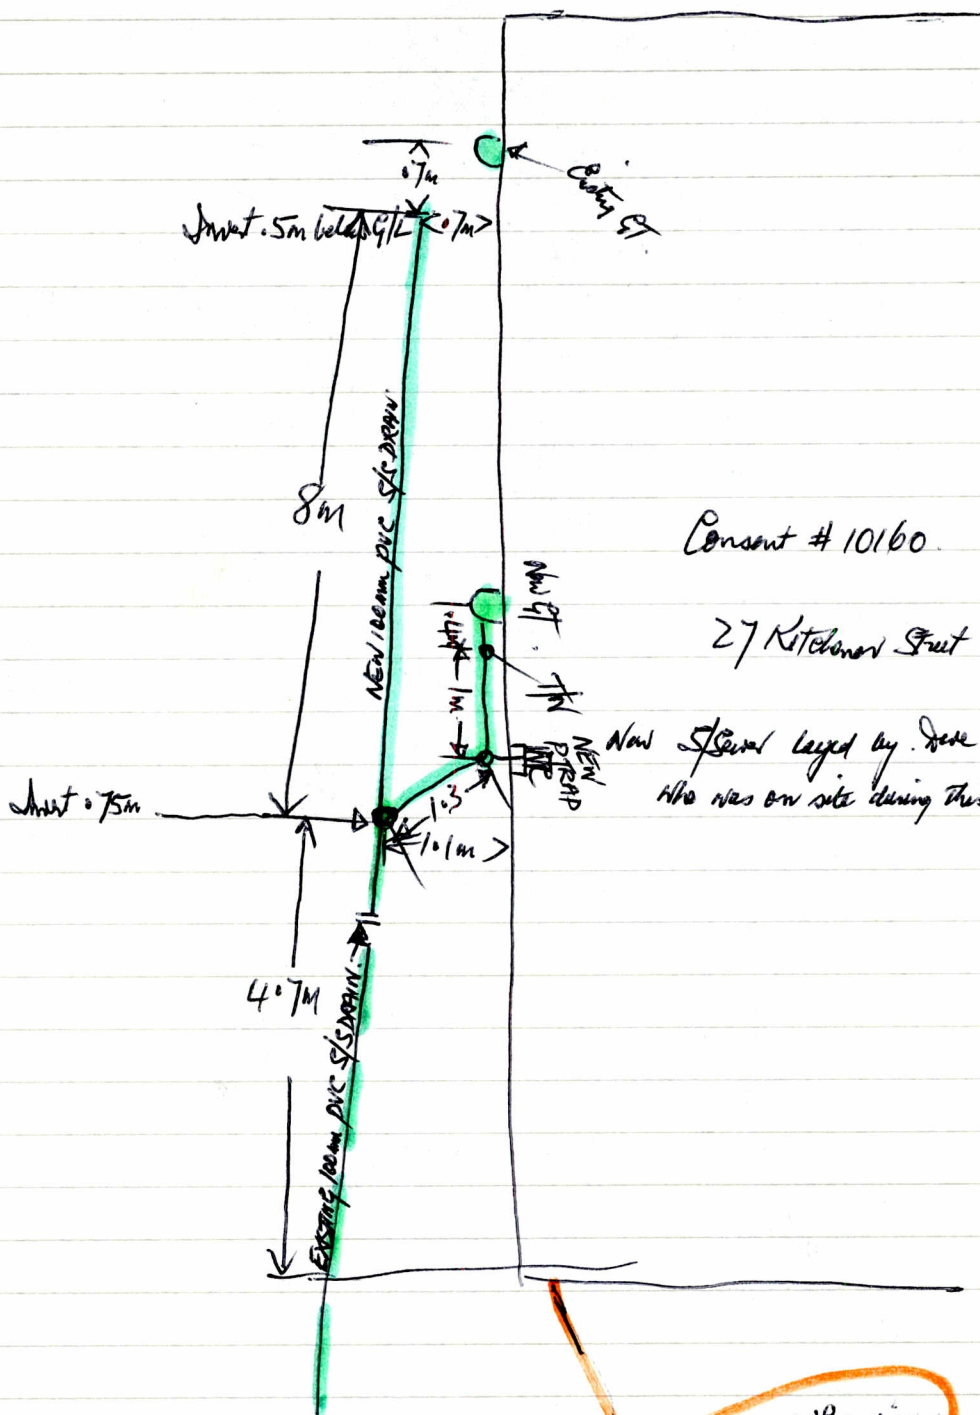 .7m
Existing GT
Invert .5m below G/L <.7m>
8m
NEW 100mm PVC S/S DRAIN
Consent # 10160.
New GT
.4m
27 Kitchener Street
1m
TV
NEW
P TRAP
WC
New S/Sewer layed by
who was on site during
Invert .75m
1.3
1.1m
4.7m
EXISTING 100mm PVC S/S DRAIN